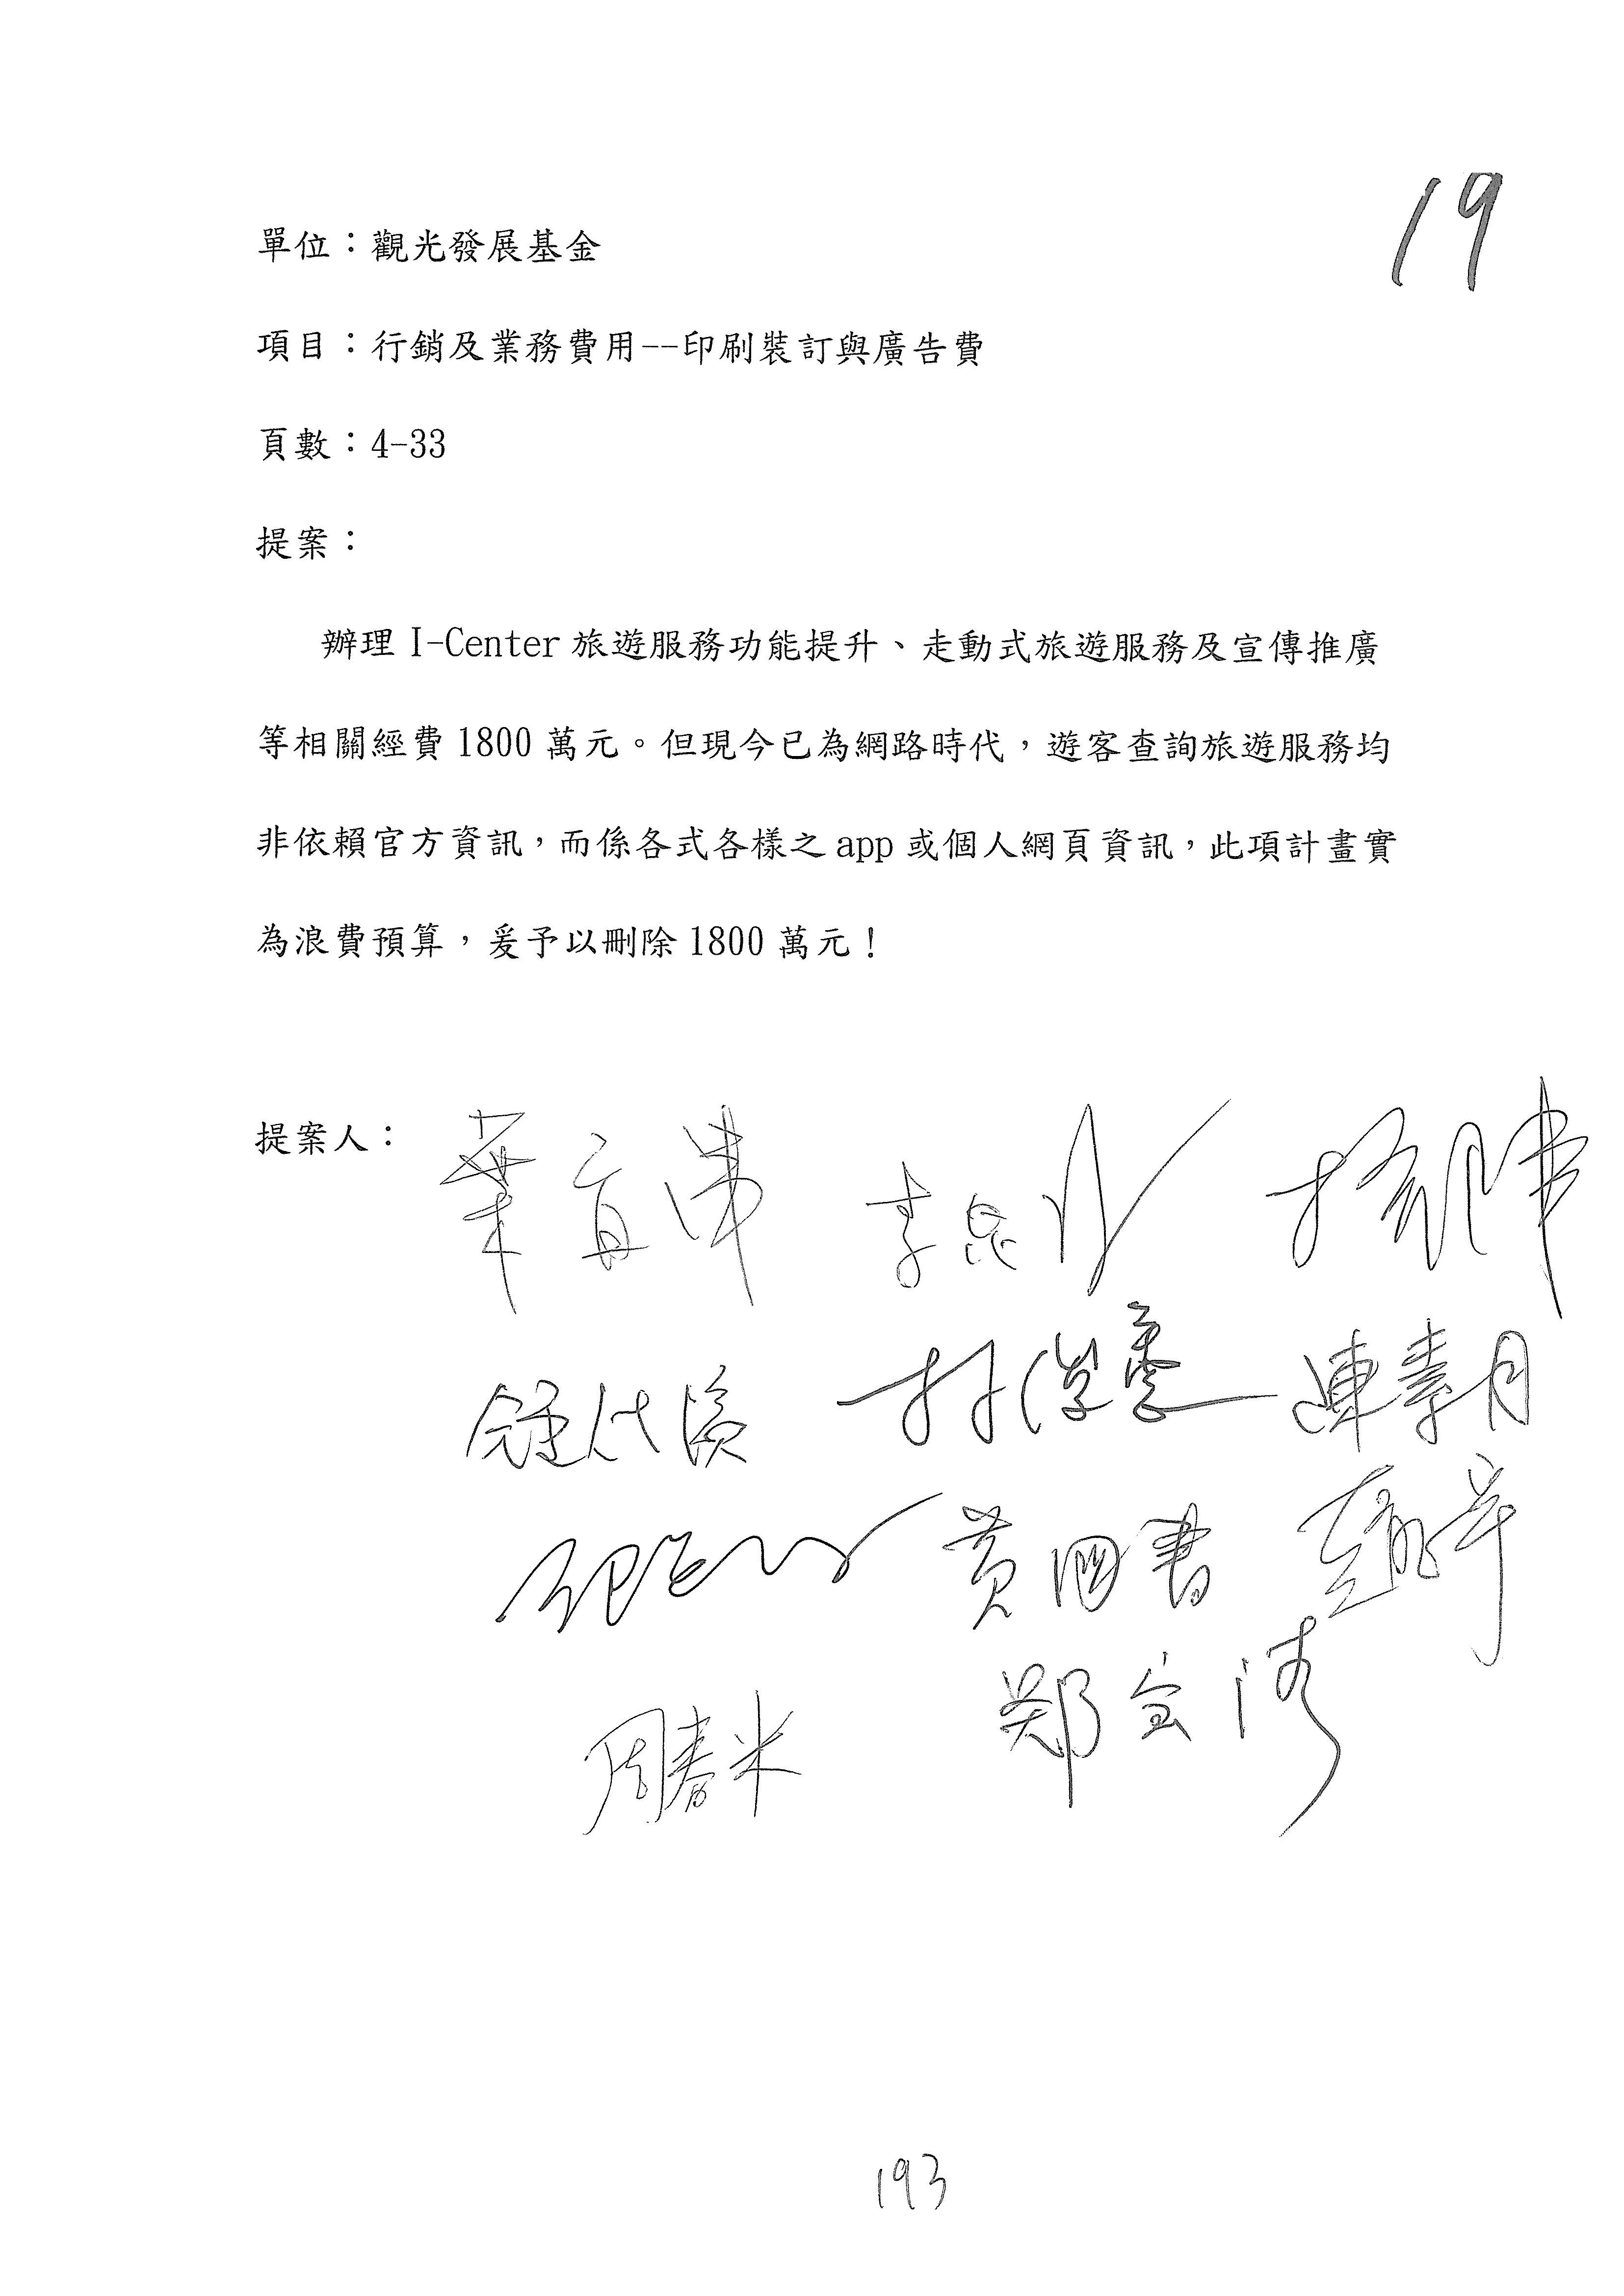 19
單位：觀光發展基金
項目：行銷及業務費用--印刷裝訂與廣告費
頁數：4-33
提案：
辦理 I-Center 旅遊服務功能提升、走動式旅遊服務及宣傳推廣
等相關經費 1800 萬元。但現今已為網路時代，遊客查詢旅遊服務均
非依賴官方資訊，而係各式各樣之 app 或個人網頁資訊，此項計畫實
為浪費預算，爰予以刪除 1800 萬元！
提案人：
葉宜津 李昆澤
鍾佳濱 林俊憲 陳素月
黃國書
周春米 鄭宝清
193